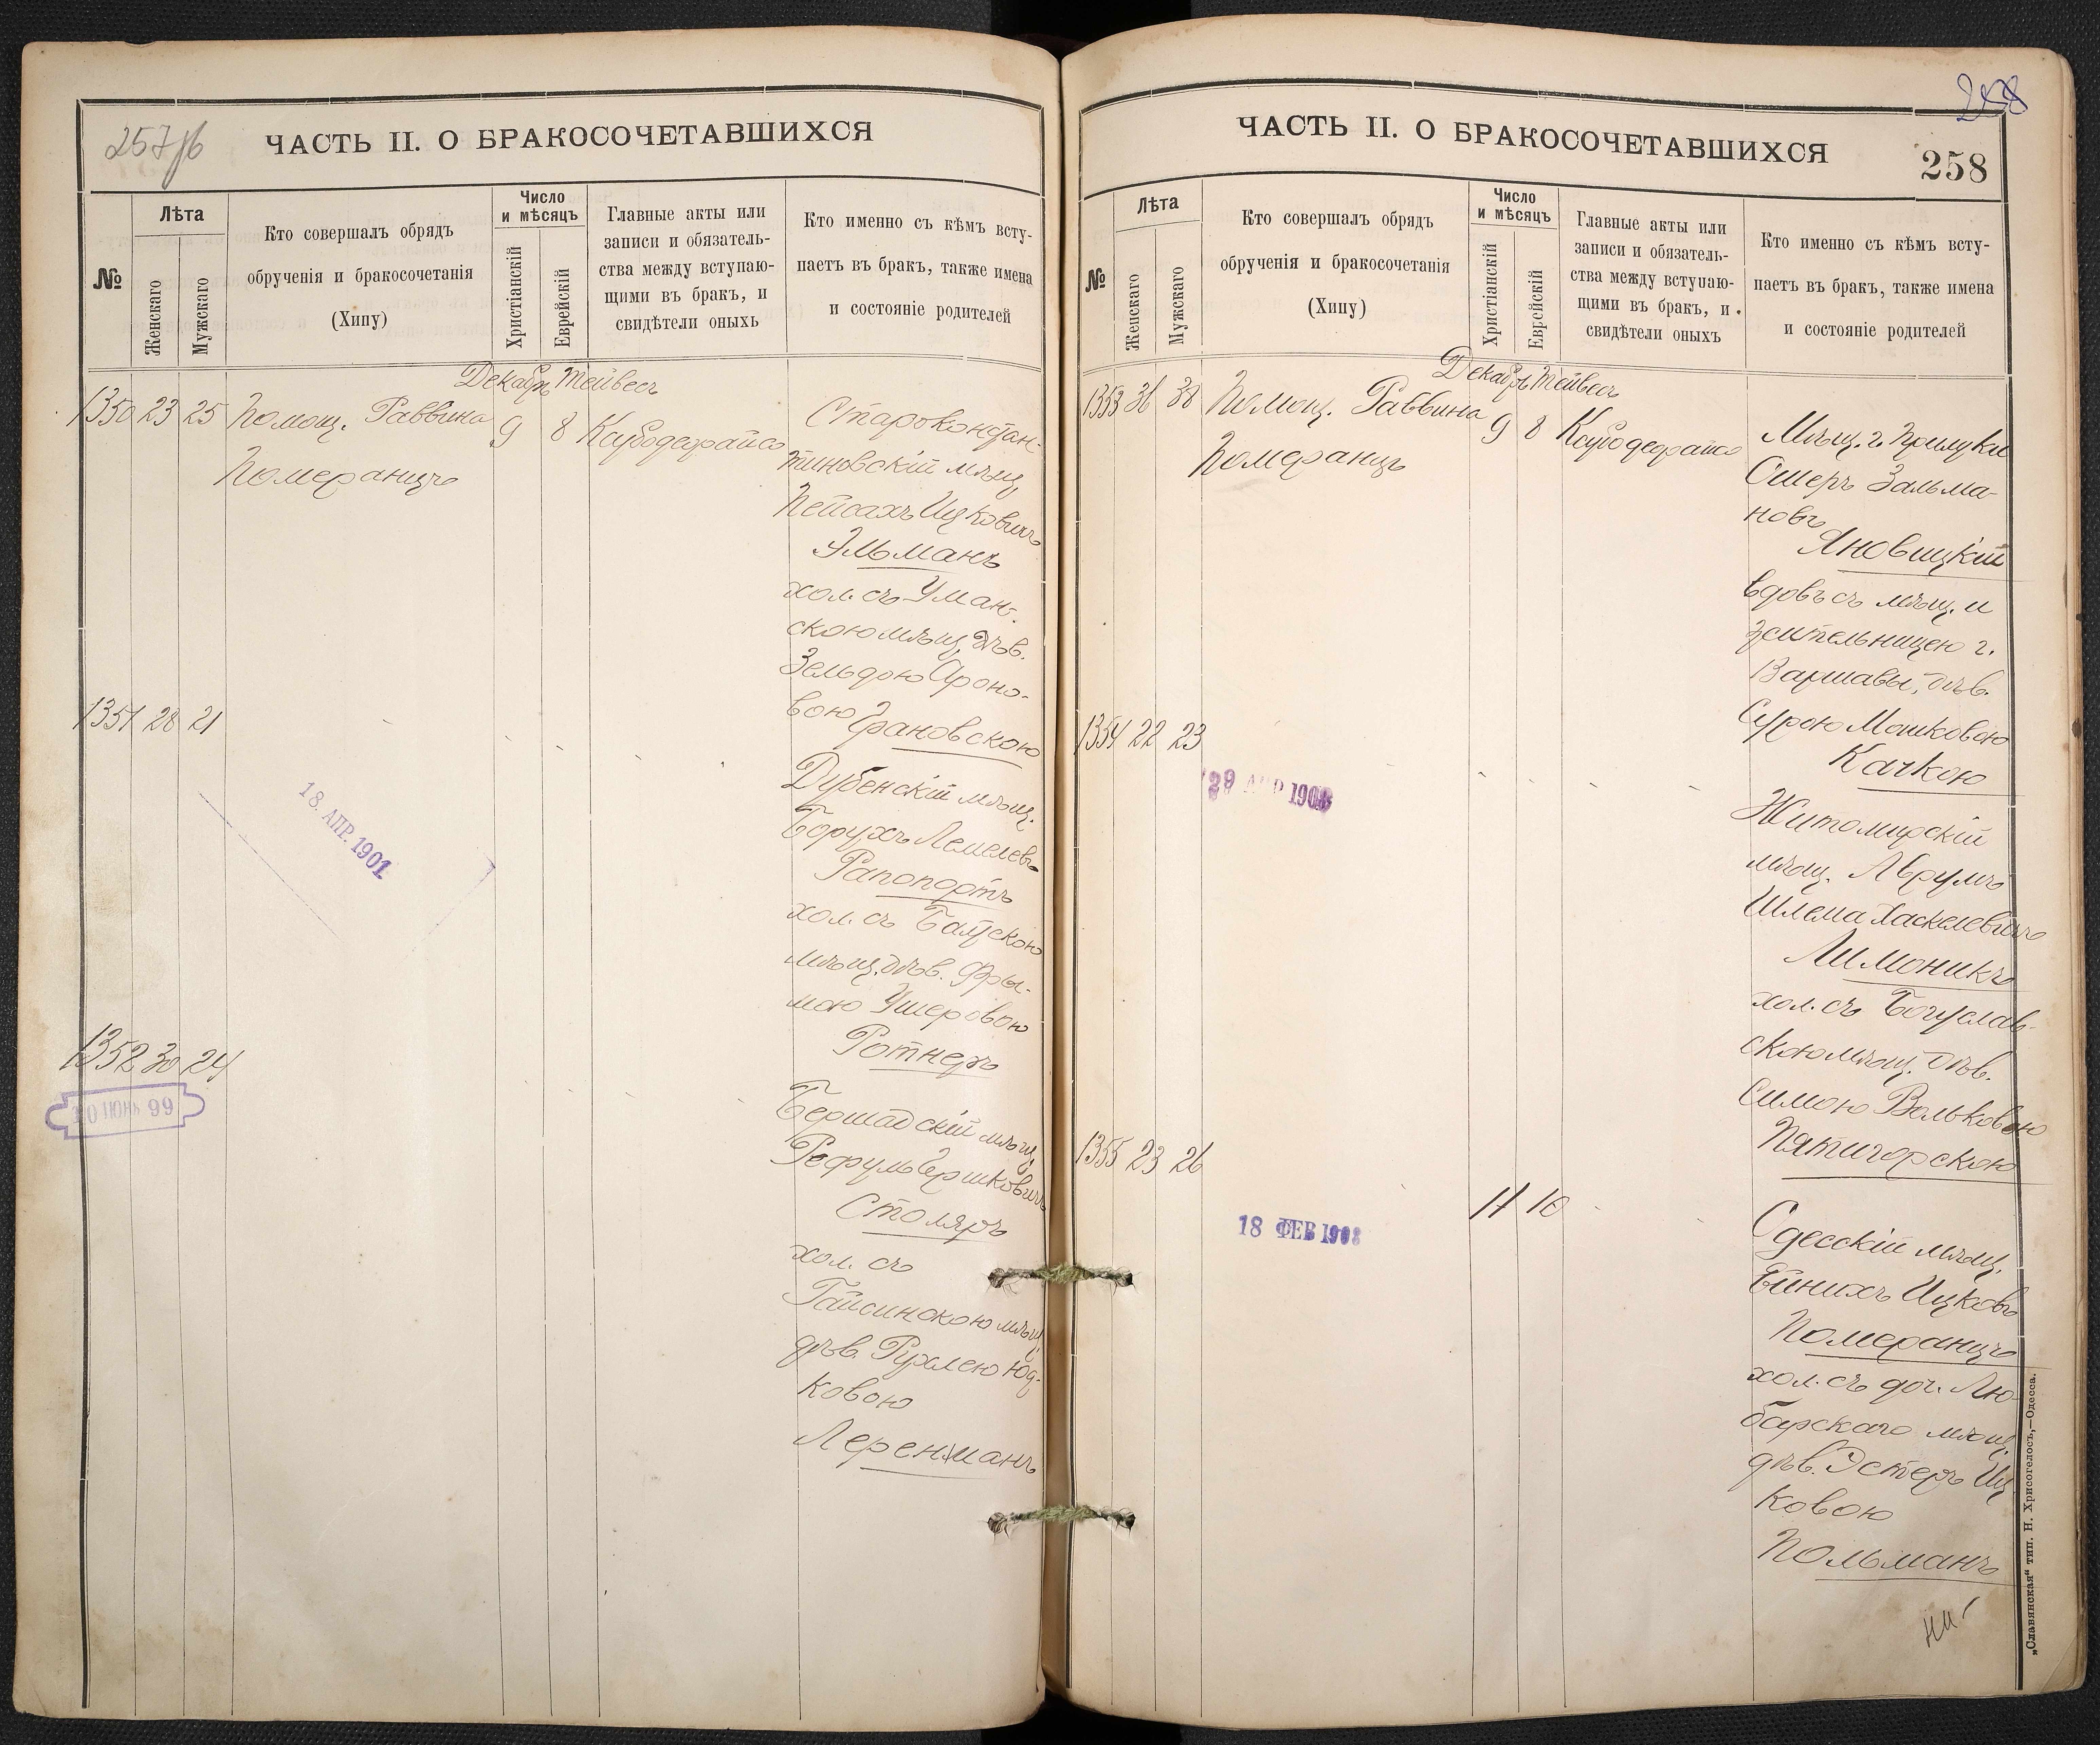 257/б
ЧАСТЬ II. О БРАКОСОЧЕТАВШИХСЯ
№
Лѣта
Женскаго
Мужскаго
Кто совершалъ обрядъ
обрученія и бракосочетанія
(Хипу)
Число
и мѣсяцъ
Христіанскій
Еврейскій
Главные акты или
записи и обязатель-
ства между вступаю-
щими въ бракъ, и
свидѣтели оныхъ
Кто именно съ кѣмъ всту-
паетъ въ бракъ, также имена
и состояніе родителей
Декабрь Тейвесъ
1350 23 25 Помощ. Раввина 9 8
Померанцъ
Староконстан-
тиновскій мѣщ.
Пейсахъ Ицковичъ
Эльманъ
хол. съ Уман-
скою мѣщ. дѣв.
Зельдою Ароно-
вою Грановскою
1351 28 21
18. АПР. 1901
Дубенскій мѣщ.
Борухъ Лемелевъ
Рапопортъ
хол. съ Балтскою
мѣщ. дѣв. Фры-
мою Ушеровою
Ротнеръ
1352 30 24
30 ІЮНЬ 99
Бершадскій мѣщ.
Рефуль Гершковичъ
Столяръ
хол. съ
Гайсинскою мѣщ.
дѣв. Рухлею Юд-
ковою
Леренманъ
258
ЧАСТЬ II. О БРАКОСОЧЕТАВШИХСЯ
258
№
Лѣта
Женскаго
Мужскаго
Кто совершалъ обрядъ
обрученія и бракосочетанія
(Хипу)
Число
и мѣсяцъ
Христіанскій
Еврейскій
Главные акты или
записи и обязатель-
ства между вступаю-
щими въ бракъ, и
свидѣтели оныхъ
Кто именно съ кѣмъ всту-
паетъ въ бракъ, также имена
и состояніе родителей
Декабрь Тейвесъ
1353 36 38 Помощ. Раввина 9 8
Померанцъ
Мѣщ. г. Прилуки
Ошеръ Зальма-
новъ
Яновицкій
вдовъ съ мѣщ. и
жительницею г.
Варшавы, дѣв.
Сурою Мошковою
Качкою
1354 22 23
29 АПР 1908
Житомирскій
мѣщ. Аврумъ
Шлема Хаскелевичъ
Лимоникъ
хол. съ Богуслав-
скою мѣщ. дѣв.
Симою Вольковою
Пятигорскою
1355 23 26 11 10
18 ФЕВ 1908
Одесскій мѣщ.
Ейнихъ Ицковъ
Померанцъ
хол. съ доч. Лю-
барскаго мѣщ.
дѣв. Эстеръ Иц
ковою
Польманъ
„Славянская“ тип. Н. Хрисогелосъ,—Одесса.